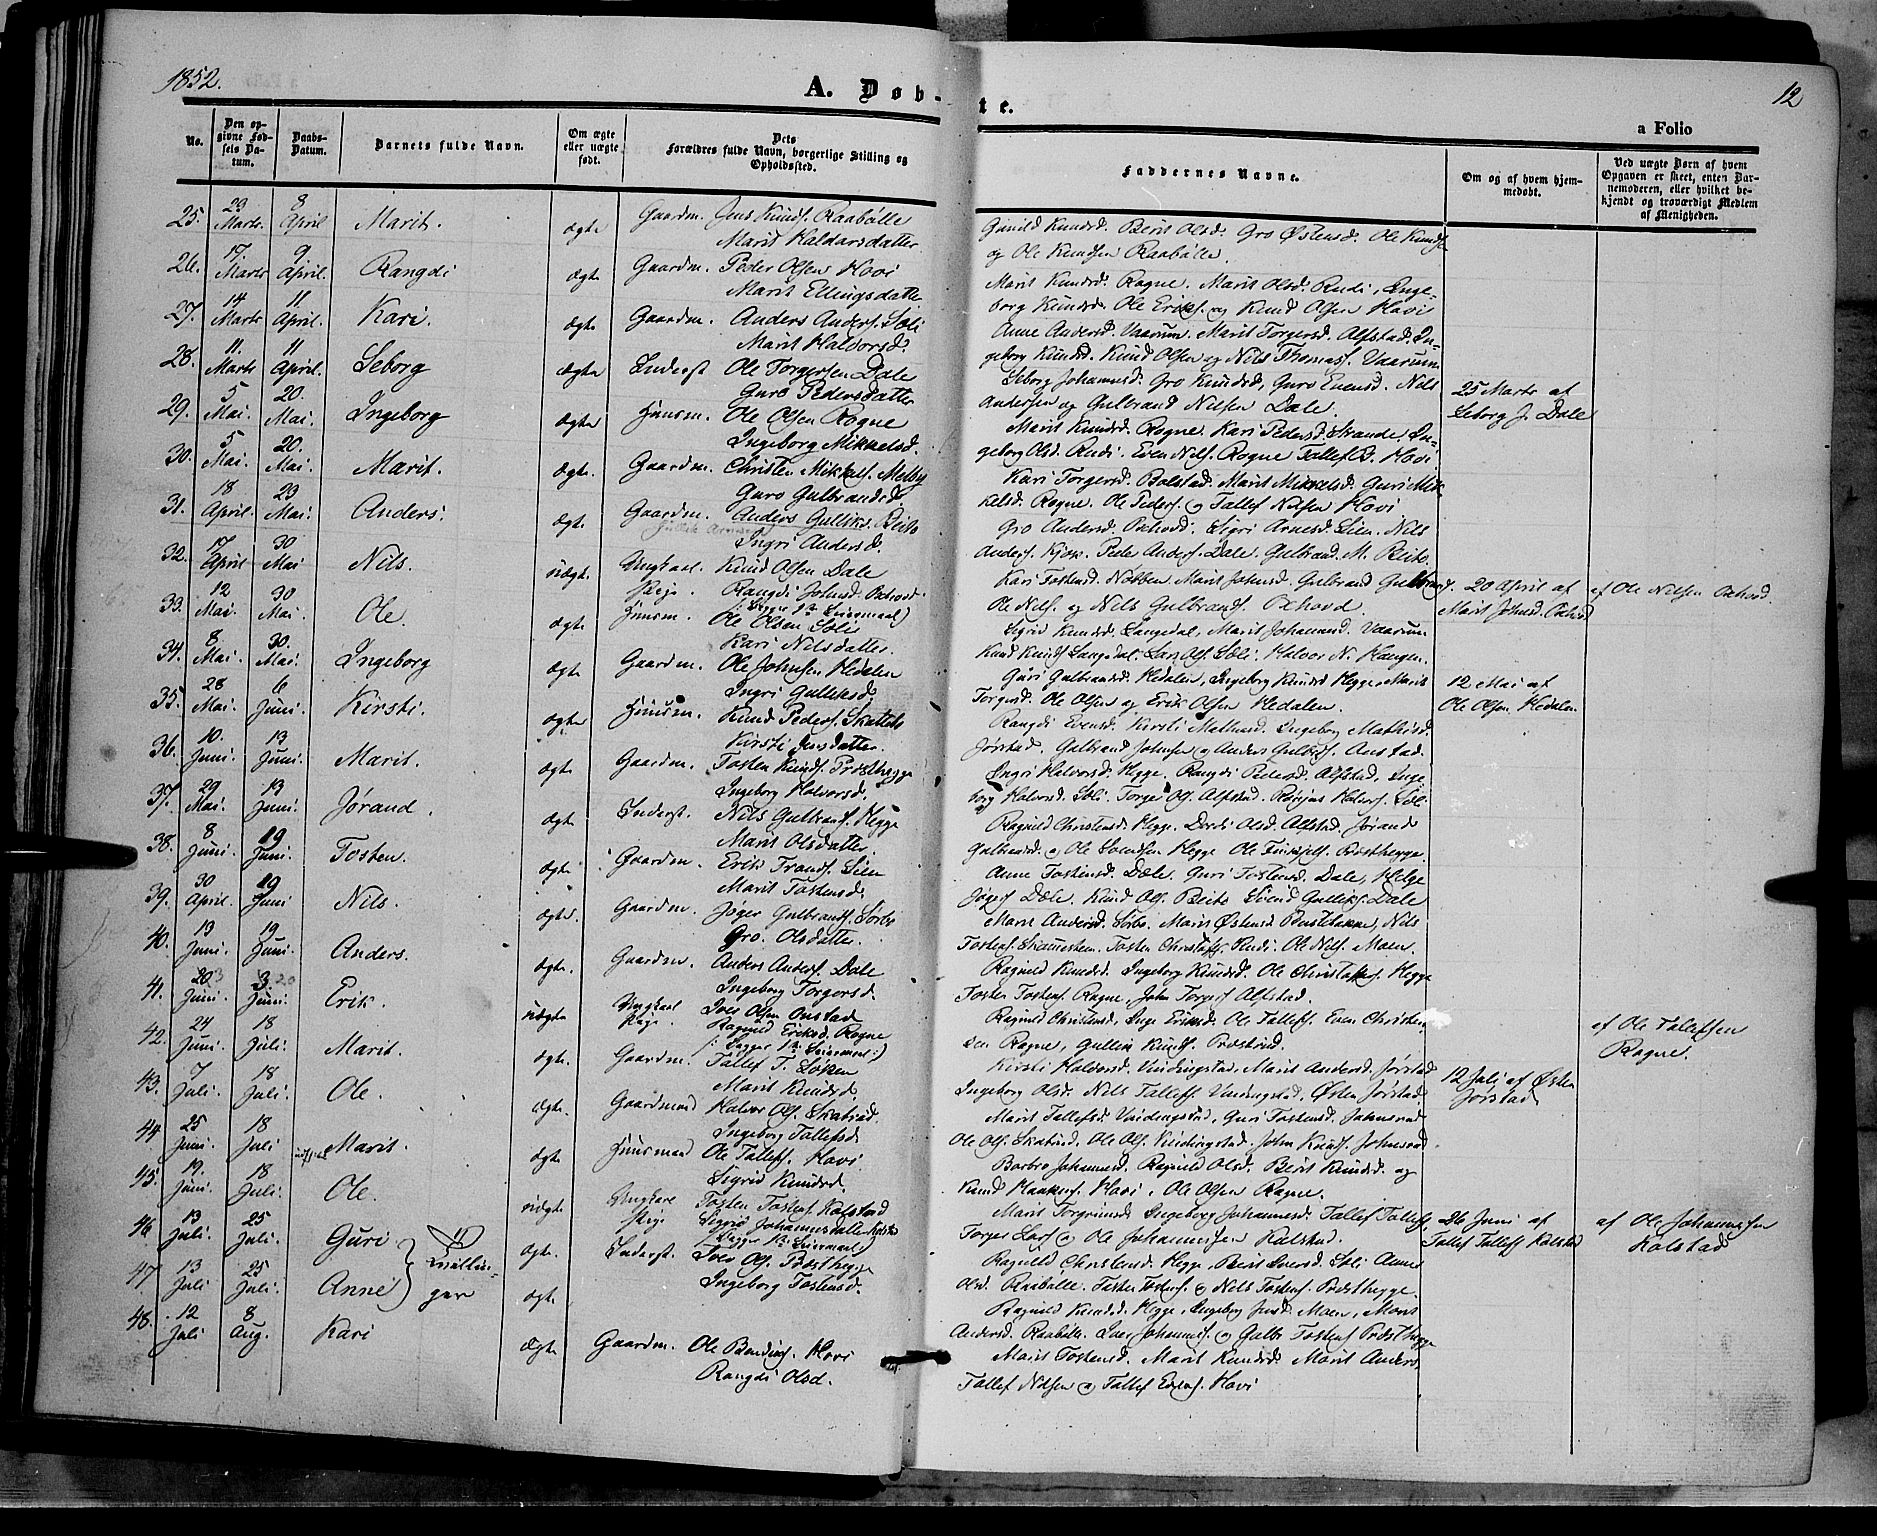 1852.
A. Døb-
te.
12
a Folio
No.
Den op-
givne Fød-
sels Da-
tum.
Daabs-
Datum.
Barnets fulde Navn.
Om ægte
eller uægte
født.
Dets
Forældres fulde Navn, borgerlige Stilling og
Opholdssted.
Faddernes Navne.
Om og af hvem hjem-
medøbt.
Ved uægte Børn af hvem
Opgaven er skeet, enten Bar-
nemoderen, eller hvilket be-
kjendt og troværdigt Medlem
af Menigheden.
25. 23 Marts. 8 April Marit. ægte Gaardm. Jens Knuds. Raabølle
Marit Haldorsdatter
Gunild Knudsd. Berit Olsd. Gro Østensd. Ole Knuds.
og Ole Knudsen Raabølle.
26. 17. Marts 9. April. Rangdi ægte Gaardm. Peder Olsen Hovi
Marit Ellingsdatter
Marit Knudsd. Rogne. Marit Olsd. Rudi, Inge-
borg Knudsd. Ole Eriks. og Knud Olsen Hovi
27. 14 Marts 11 April. Kari. ægte Gaardm. Anders Anders. Soli
Marit Halvorsd.
Anne Andersd. Vaarum. Marit Torgersd. Alfstad. In-
geborg Knudsd. Knud Olsen og Nils Thomass. Vaarum
28. 11. Marts 11 April. Seborg ægte Inderst Ole Torgersen Dale
Guro Pedersdatter
Seborg Johannesd. Gro Knudsd, Guro Evensd. Nils
Andersen og Gulbrand Nilsen Dale.
25 Marts af
Seborg J. Dale
29. 5 Mai. 20. Mai. Ingeborg ægte Huusm. Ole Olsen Rogne
Ingeborg Mikkelsd.
Marit Knudsd. Rogne. Kari Pedersd. Strande In-
geborg Olsd. Rudi. Even Nils. Rogne Tallef B. Hovi
30. 5 Mai. 20. Mai. Marit. ægte Gaardm. Christen Mikkels. Melby
Guro Gulbrandsd.
Kari Torgersd. Bolstad. Marit Mikkelsd. Guri Mik-
kelsd. Rogne. Ole Peders. og Tallef Nilsen Hovi
31. 18 April. 23 Mai. Anders. ægte Gaardm. Anders Gulliks. Beito
Ingri Andersd.
Gro Andersd. Oxhovd. Sigri Arnesd. Lien. Nils
Anders. Kjos. Peder Anders. Dale. Gulbrand M. Beito
32. 17 April 30 Mai Nils. uægte. Ungkarl. Knud Olsen Dale
Pige. Rangdi Johnsd. Oxhovd.
(: Begges 1ste Leiermaal)
Kari Tostensd. Nøbben Marit Johnsd. Gulbrand Gulbrands.
Ole Nils. og Nils Gulbrands. Oxhovd.
20 April af
Marit Johnsd. Oxhovd
af Ole Nilsen Oxhovd.
33. 12 Mai. 30 Mai. Ole. ægte Huusm. Ole Olsen Soli
Kari Nilsdatter.
Sigrid Knudsd. Langedal, Marit Johannesd. Vaarum
Knud Knuds. Langedal. Lars Ols. Soli. Halvor N. Haugen.
34. 8 Mai. 30. Mai. Ingeborg ægte Gaardm. Ole Johnsen Hedalen
Ingri Gulliksd.
Guri Gulbrandsd. Hedalen, Ingeborg Knudsd Hegge, Marit
Torgersd. Ole Olsen og Erik Olsen Hedalen.
12 Mai af
Ole Olsen Hedalen
35. 28 Mai. 6 Juni. Kirsti. ægte Huusm. Knud Peders. Skattebo
Kirsti Jensdatter.
Rangdi Evensd. Kirsti Mathisd. Ingeborg Mathisd.
Jørstad. Gulbrand Johnsen og Anders Gulbrs. Onstad.
36. 10. Juni. 13 Juni. Marit. ægte Gaardm. Tosten Knuds. Prøsthegge
Ingeborg Halvorsd.
Ingri Halvorsd. Hegge. Rangdi Pedersd. Alfstad, Inge
borg Halvorsd. Soli. Torger Ols. Alfstad. Halvors. Soli
37. 29 Mai. 13 Juni. Jørand. ægte Inderst. Nils Gulbrands. Hegge
Marit Olsdatter
Ragnild Christensd. Hegge. Olsd. Alfstad. Jørand
Gulbrandsd. og Ole Svendsen Hegge Ole Prøsthegge.
38. 8 Juni. 19 Juni. Tosten. ægte Gaardm. Erik Trands. Lien
Marit Tostensd.
Anne Tostensd. Dale. Guri Tostensd. Dale, Helge
Dale. Knud Ols. Beito Svend Gulliks. Dale
39. 30 April. 19 Juni Nils. ægte. Gaardm. Jøger Gulbrands. Sørbo
Gro. Olsdatter.
Marit Andersd. Sørbo. Marit Østensd Nils
Tostens. Tosten Rudi. Ole Nils. Moen.
40. 13 Juni. 19 Juni. Anders. ægte. Gaardm. Anders Anders. Dale
Ingeborg Torgersd.
Ragnild Knudsd. Ingeborg Knudsd. Ole Hegge
Tosten Tostens. Rogne, John Torgers. Alfstad.
41. 20 Juni. 3. Juni. Erik. uægte Ungkarl Iver Olsen Onstad
Pige. Ragnild Eriksd. Rogne
(: Begges 1ste Leiermaal:)
Ragnild Christensd, Inge Eriksd. Ole Tallefs. Even Christen
sen Rogne, Gullik Knuds.
af Ole Tallefsen
Rogne.
42. 24 Juni. 18 Juli. Marit. ægte. Gaardm. Tallef T. Løken
Marit Knudsd.
Kirsti Halvorsd. Vindingstad, Marit Andersd. Jørstad
Ingeborg Olsd. Nils Tallefs. Vindingstad, Østen Jørstad
12 Juli af Østen
Jørstad.
43. 7 Juli. 18 Juli. Ole. ægte. Gaardmand Halvor Ols. Skatrud.
Ingeborg Tallefsd.
Marit Tallefsd. Vindingstad, Guri Tostensd. Johnsrud
Ole Ols. Skatrud, Ole Ols. Vindingstad. John Knuds. Johnsrud.
44. 25 Juni. 18 Juli Marit. ægte Huusmand Ole Tallefs. Hovi
Sigrid Knudsd.
Barbro Johannesd. Ragnild Olsd. Berit Knudsd. og
Knud Haakens. Hovi, Ole Olsen Rogne.
45. 19. Juni. 18 Juli. Ole. uægte Ungkarl Tosten Tostens. Kolstad
Pige Sigrid Johannesdatter Kolstad
(: Begges 1ste Leiermaal)
Marit Torgrimsd. Ingeborg Johannesd. Tallef Tallefs.
Torger Lars. og Ole Johannessen Kolstad.
26 Juni af
Tallef Tallefs. Kolstad
af Ole Johannessen
Kolstad
46 13 Juli. 25 Juli. Guri Tvillin- ægte. Inderst. Iver Ols. Prøsthegge
Ingeborg Tostensd.
Ragnild Christensd. Hegge, Berit Iversd. Soli Anne
Olsd. Raabølle. Tosten Tostens. og Nils Tostens. Prøsthegge.
47. 13 Juli 25 Juli. Anne ger ægte.
Ragnild Knudsd. Hegge, Ingeborg Jensd. Moen, Marit
Andersd. Raabølle. Iver Johannes. og Gulbr. Tostens. Prøsthegge
48. 12 Juli 8 Aug. Kari ægte Gaardm. Ole Bendiks. Hovi
Rangdi Olsd.
Marit Tostensd. Marit Knudsd. Marit Anders
Tallef Nilsen og Tallef Evens. Hovi